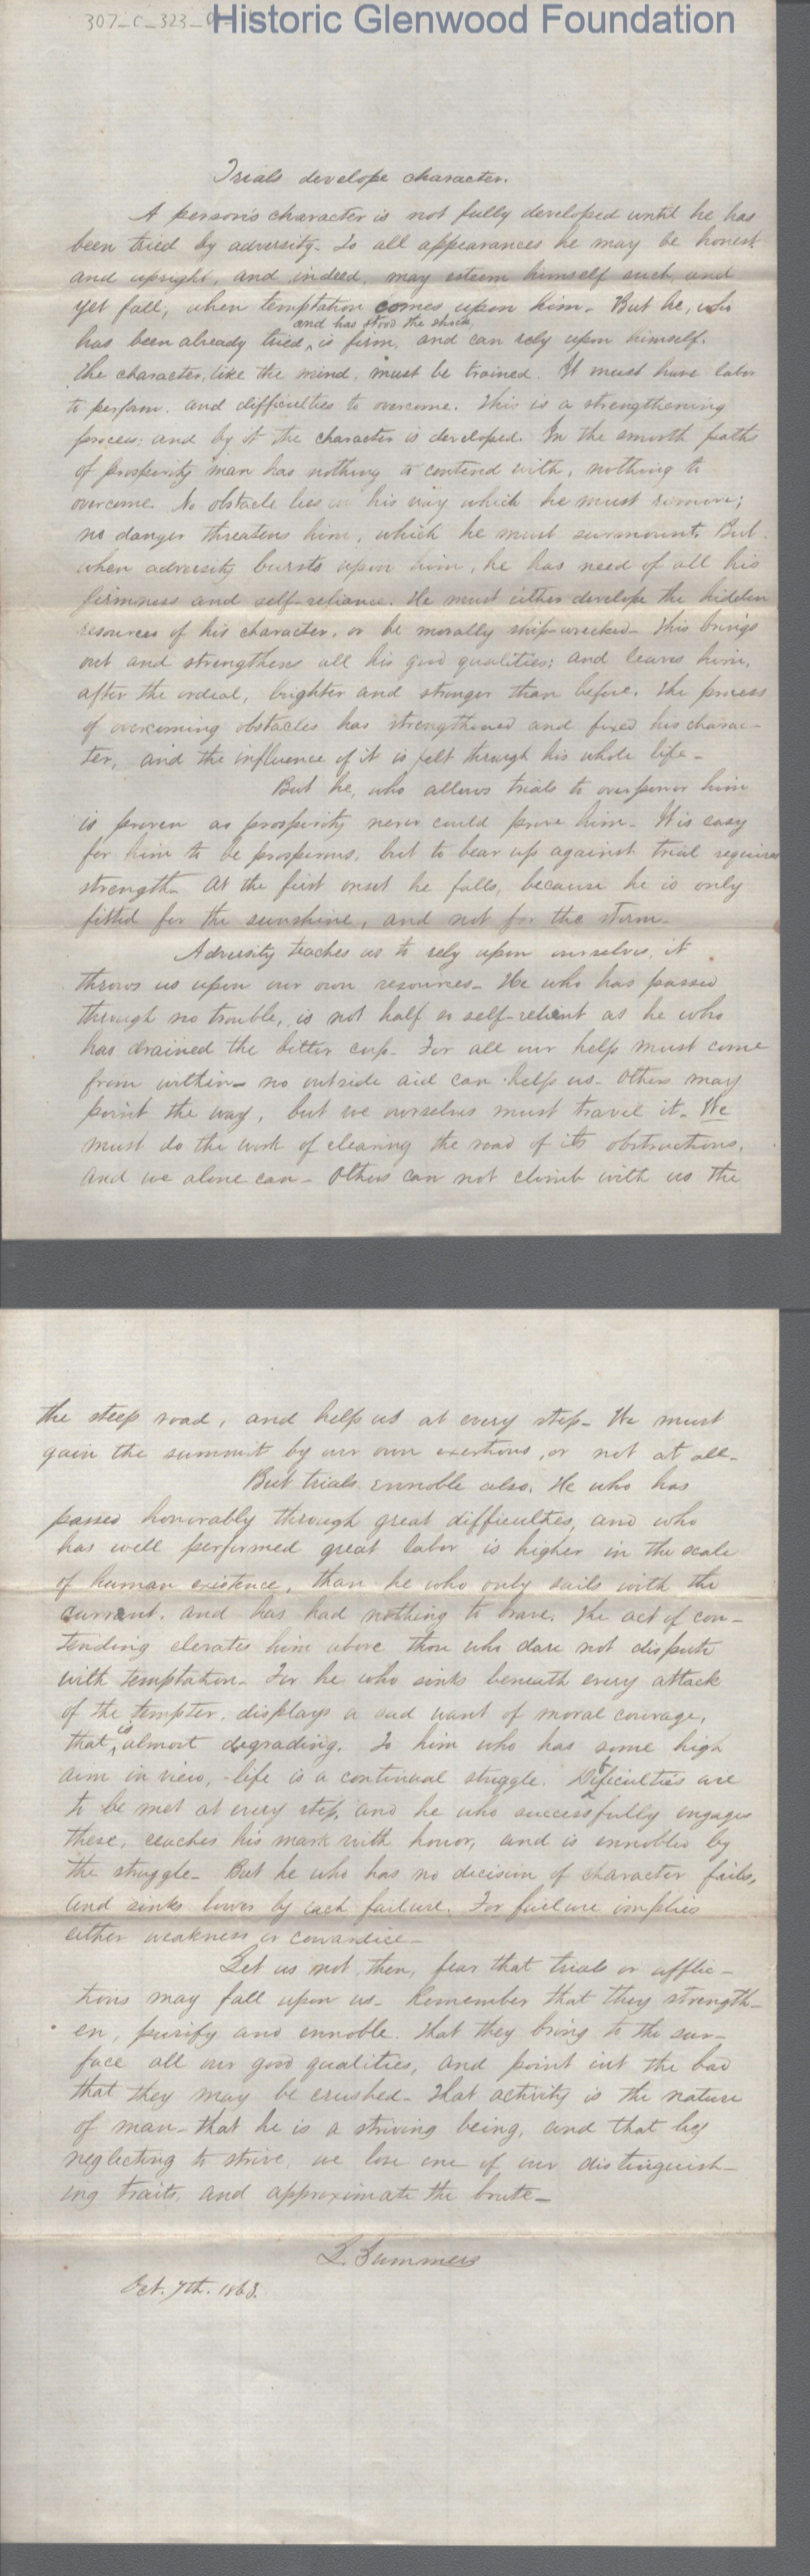 307_C_323_
Historic Glenwood Foundation
Trials develope character.
A person's character is not fully developed until he has
been tried by adversity. To all appearances he may be honest
and upright, and indeed, may esteem himself such, and
yet fall, when temptation comes upon him. But he, who
and has stood the shock,
has been already tried, ^ is firm, and can rely upon himself.
The character, like the mind, must be trained. It must have labor
to perform, and difficulties to overcome. This is a strengthening
process; and by it the character is developed. In the smooth paths
of prosperity man has nothing to contend with, nothing to
overcome. No obstacle lies in his way which he must remove;
no danger threatens him, which he must surmount. But
when adversity bursts upon him, he has need of all his
firmness and self-reliance. He must either develope the hidden
resources of his character, or be morally ship-wrecked. This brings
out and strengthens all his good qualities; and leaves him,
after the ordeal, brighter and stronger than before. The process
of overcoming obstacles has strengthened and fixed his charac-
ter, and the influence of it is felt through his whole life -
But he, who allows trials to overpower him
is proven as prosperity never could prove him - It is easy
for him to be prosperous, but to bear up against trial requires
strength - At the first onset he falls, because he is only
fitted for the sunshine, and not for the storm -
Adversity teaches us to rely upon ourselves, it
throws us upon our own resources - He who has passed
through no trouble, is not half so self-reliant as he who
has drained the bitter cup - For all our help must come
from within - no outside aid can help us - Others may
point the way, but we ourselves must travel it - We
must do the work of clearing the road of its obstructions,
and we alone can - Others can not climb with us the
the steep road, and help us at every step - We must
gain the summit by our own exertions, or not at all -
But trials ennoble also. He who has
passed honorably through great difficulties, and who
has well performed great labor is higher in the scale
of human existence, than he who only sails with the
current, and has had nothing to brave. The act of con-
tending elevates him above those who dare not dispute
with temptation - For he who sinks beneath every attack
of the tempter, displays a sad want of moral courage,
is
that ^ almost degrading. To him who has some high
aim in view, life is a continual struggle. Difficulties are
to be met at every step, and he who successfully engages
these, reaches his mark with honor, and is ennobled by
the struggle - But he who has no decision of character fails,
and sinks lower by each failure. For failure implies
either weakness or cowardice -
Let us not, then, fear that trials or afflic-
tions may fall upon us - Remember that they strength-
en, purify and ennoble. That they bring to the sur-
face all our good qualities, and point out the bad
that they may be crushed - That activity is the nature
of man - that he is a striving being, and that by
neglecting to strive, we lose one of our distinguish-
ing traits, and approximate the brute -
L. Summers
Oct. 7th. 1863.